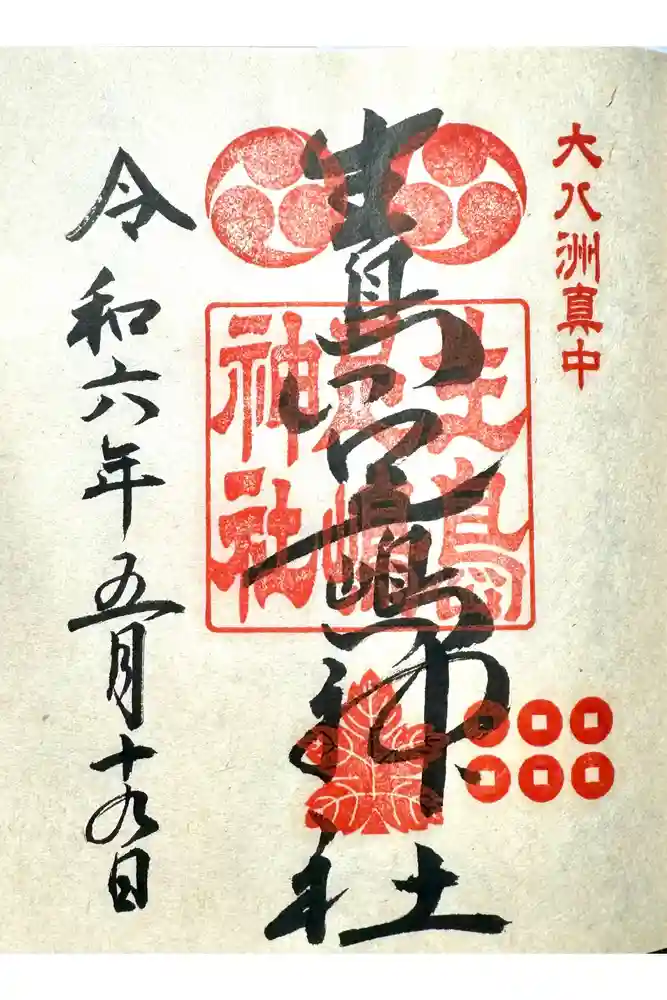 大八洲真中
生島足島神社
生島
足嶋
神社
令和六年五月十九日